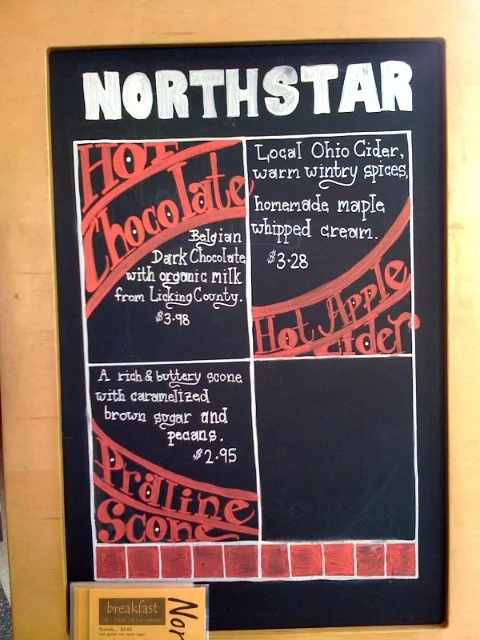 NORTHSTAR
Hot
Chocolate
Belgian
Dark Chocolate
with organic milk
from Licking County.
$3.98
Local Ohio Cider,
warm wintry spices,
homemade maple
whipped cream.
$3.28
Hot Apple
Cider
A rich & buttery scone
with caramelized
brown sugar and
pecans.
$2.95
Praline
Scone
breakfast
Nor